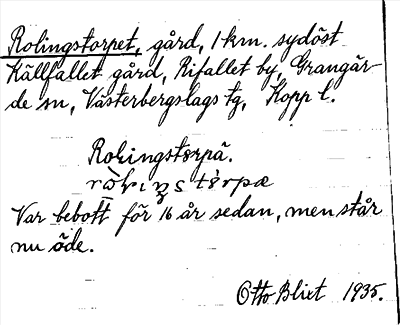 Rolingstorpet, gård, 1 km. sydöst
Källfallet gård, Rifallet by, Grangär-
de sn, Västerbergslags tg, Kopp l.
Rolingstorpä.
Var bebott för 16 år sedan, men står
nu öde.
Otto Blixt 1935.